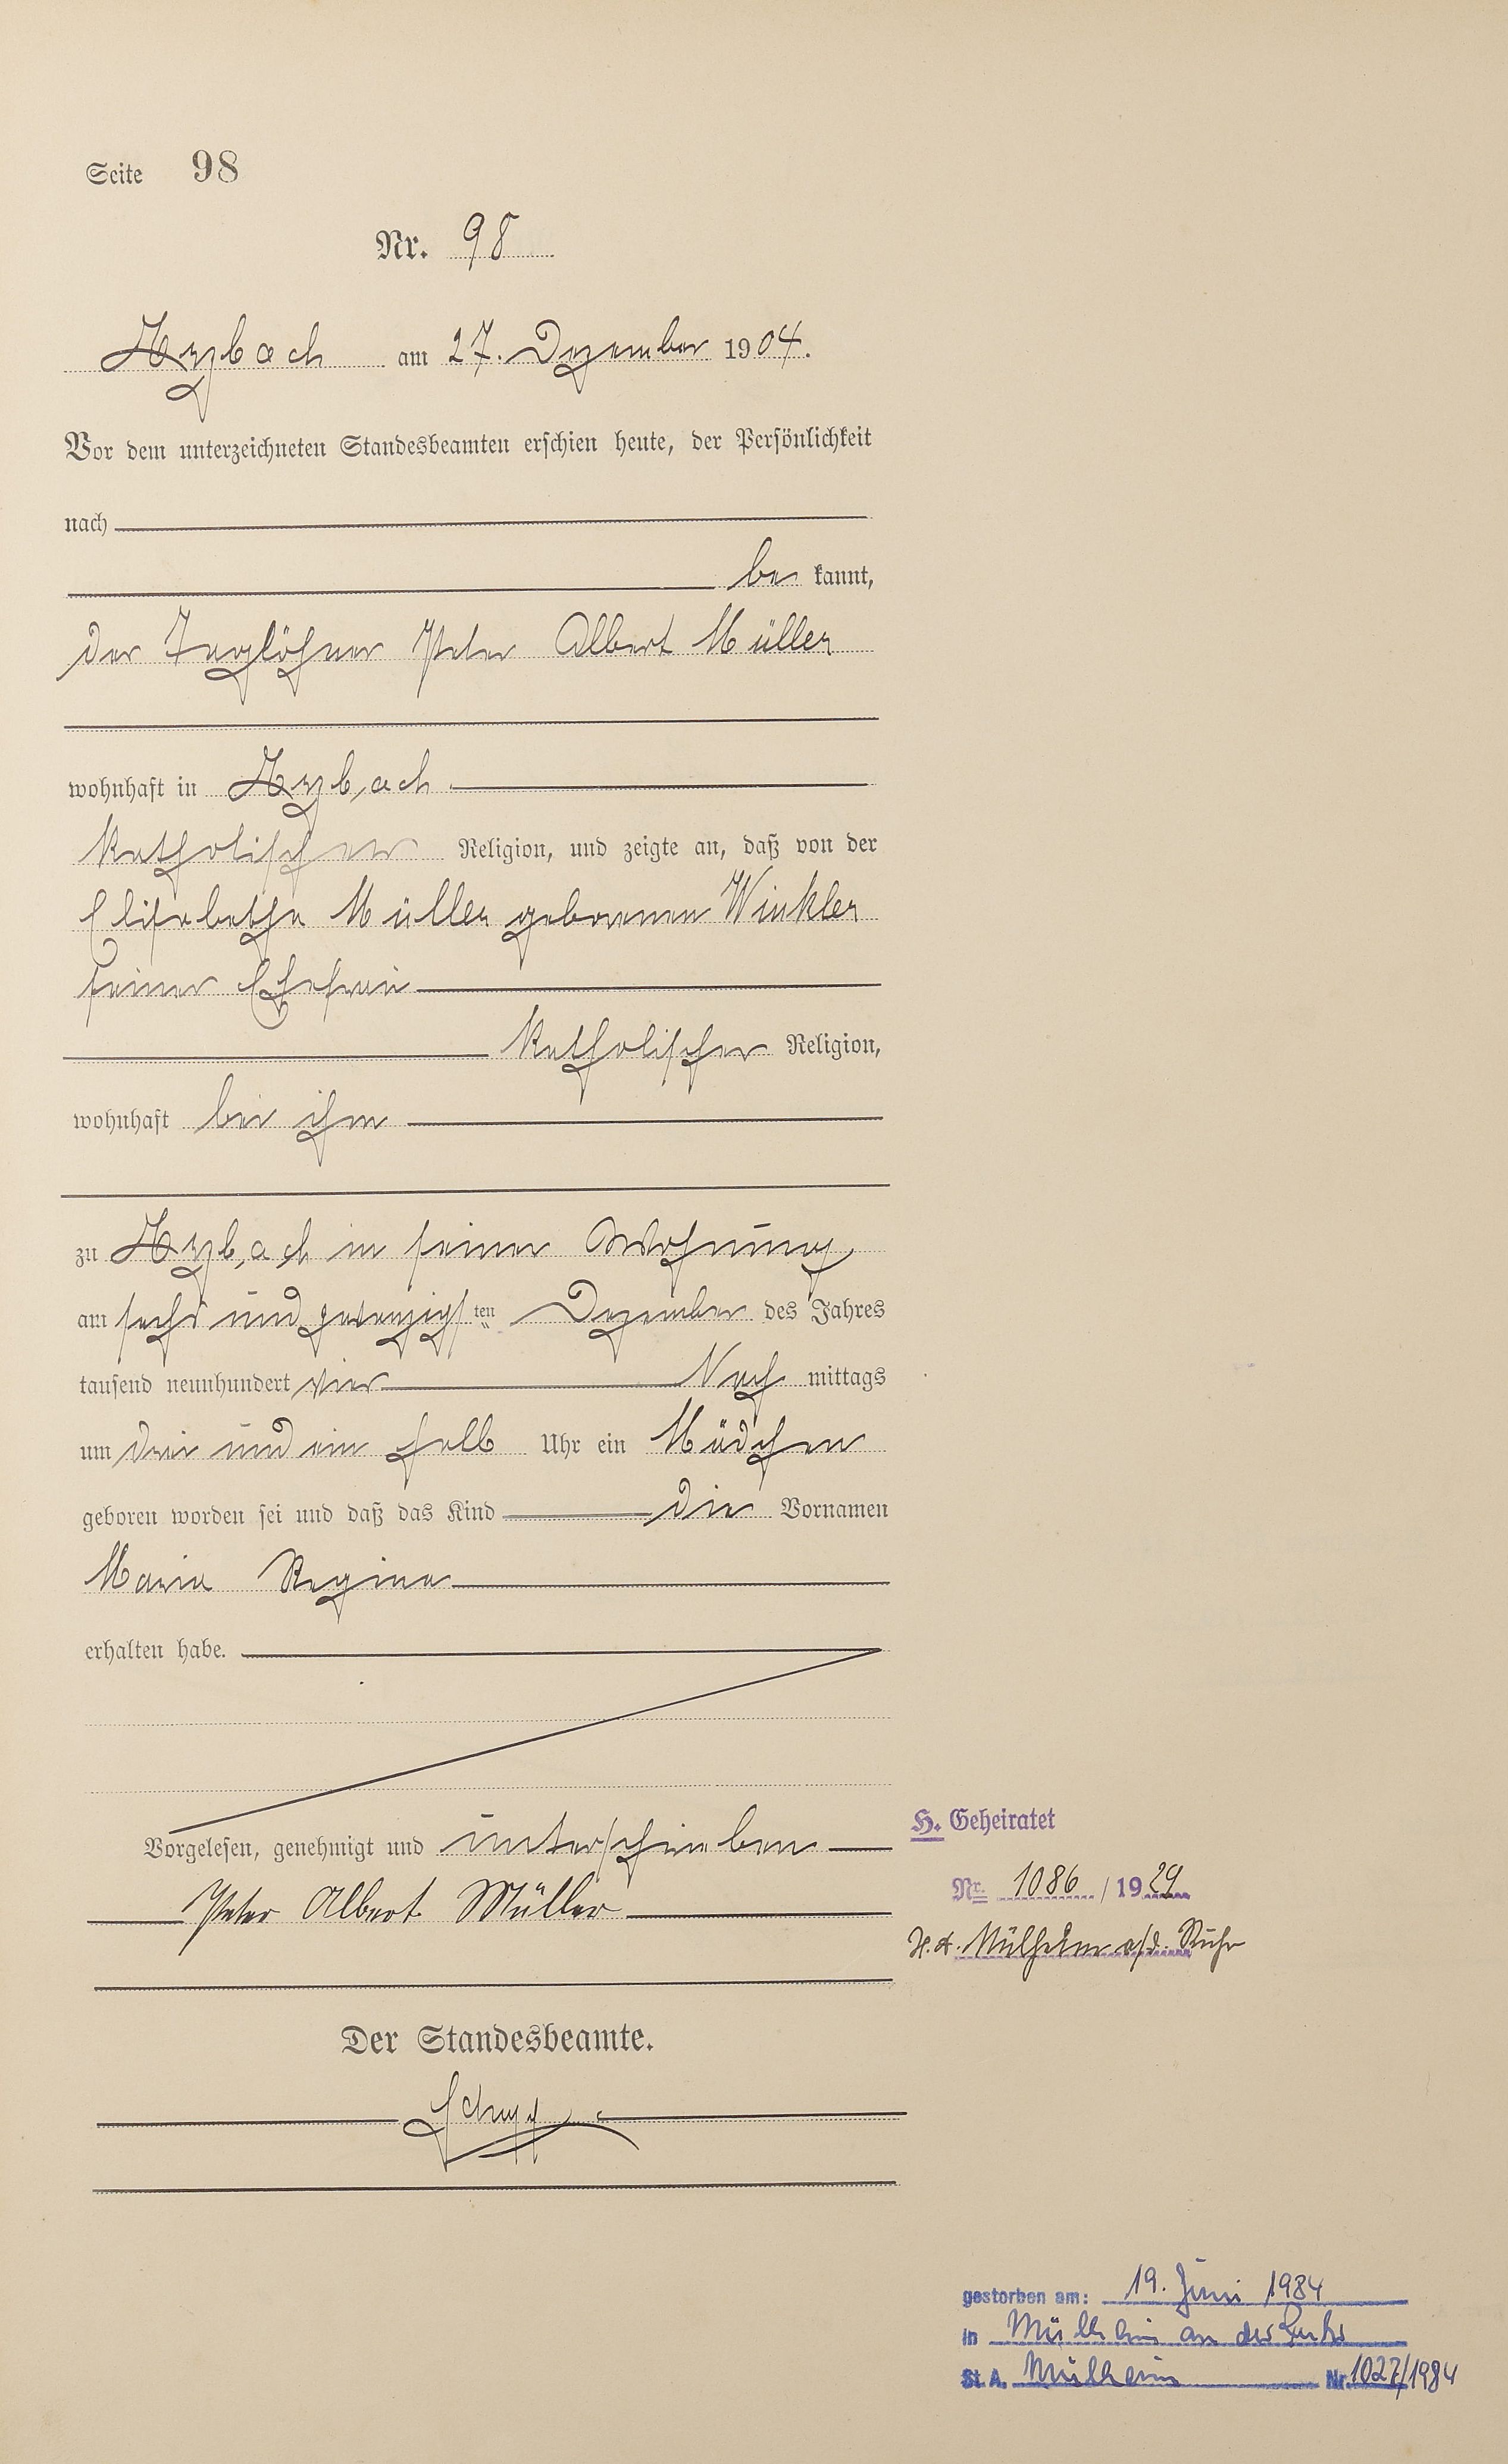 Seite 98
Nr. 98
Arzbach am 27. Dezember 1904.
Vor dem unterzeichneten Standesbeamten erschien heute, der Persönlichkeit
nach
be kannt,
der Taglöhner Peter Albert Müller
wohnhaft in Arzbach
katholischer Religion, und zeigte an, daß von der
Elisabetha Müller geborenen Winkler
seiner Ehefrau
katholischer Religion,
wohnhaft bei ihm
zu Arzbach in seiner Wohnung
am sechs und zwanzigsten Dezember des Jahres
tausend neunhundert vier Nach mittags
um drei und ein halb Uhr ein Mädchen
geboren worden sei und daß das Kind die Vornamen
Maria Regina
erhalten habe.
Vorgelesen, genehmigt und unterschrieben
Peter Albert Müller
Der Standesbeamte.
H. Geheiratet
Nr. 1086 / 1929
Mülheim a/d. Ruhr
gestorben am: 19. Juni 1984
in Mülheim an der Ruhr
St.A. Mülheim Nr. 1027/1984